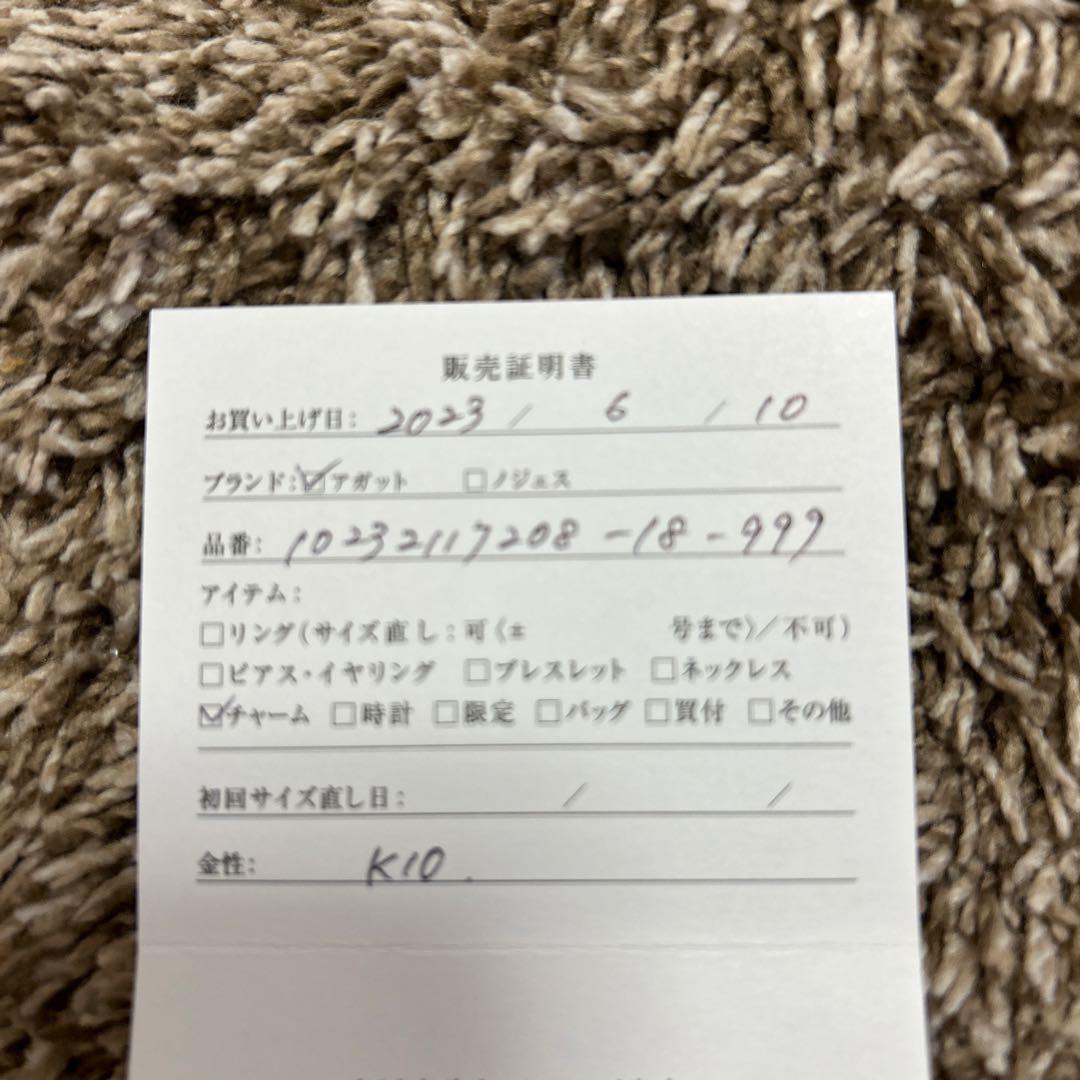 販売証明書
お買い上げ日: 2023 / 6 / 10
ブランド:☑アガット □ノジェス
品番: 10232117208-18-999
アイテム:
□リング(サイズ直し:可〈± 号まで〉/不可)
□ピアス・イヤリング □ブレスレット □ネックレス
☑チャーム □時計 □限定 □バッグ □買付 □その他
初回サイズ直し日: / /
金性: K10.